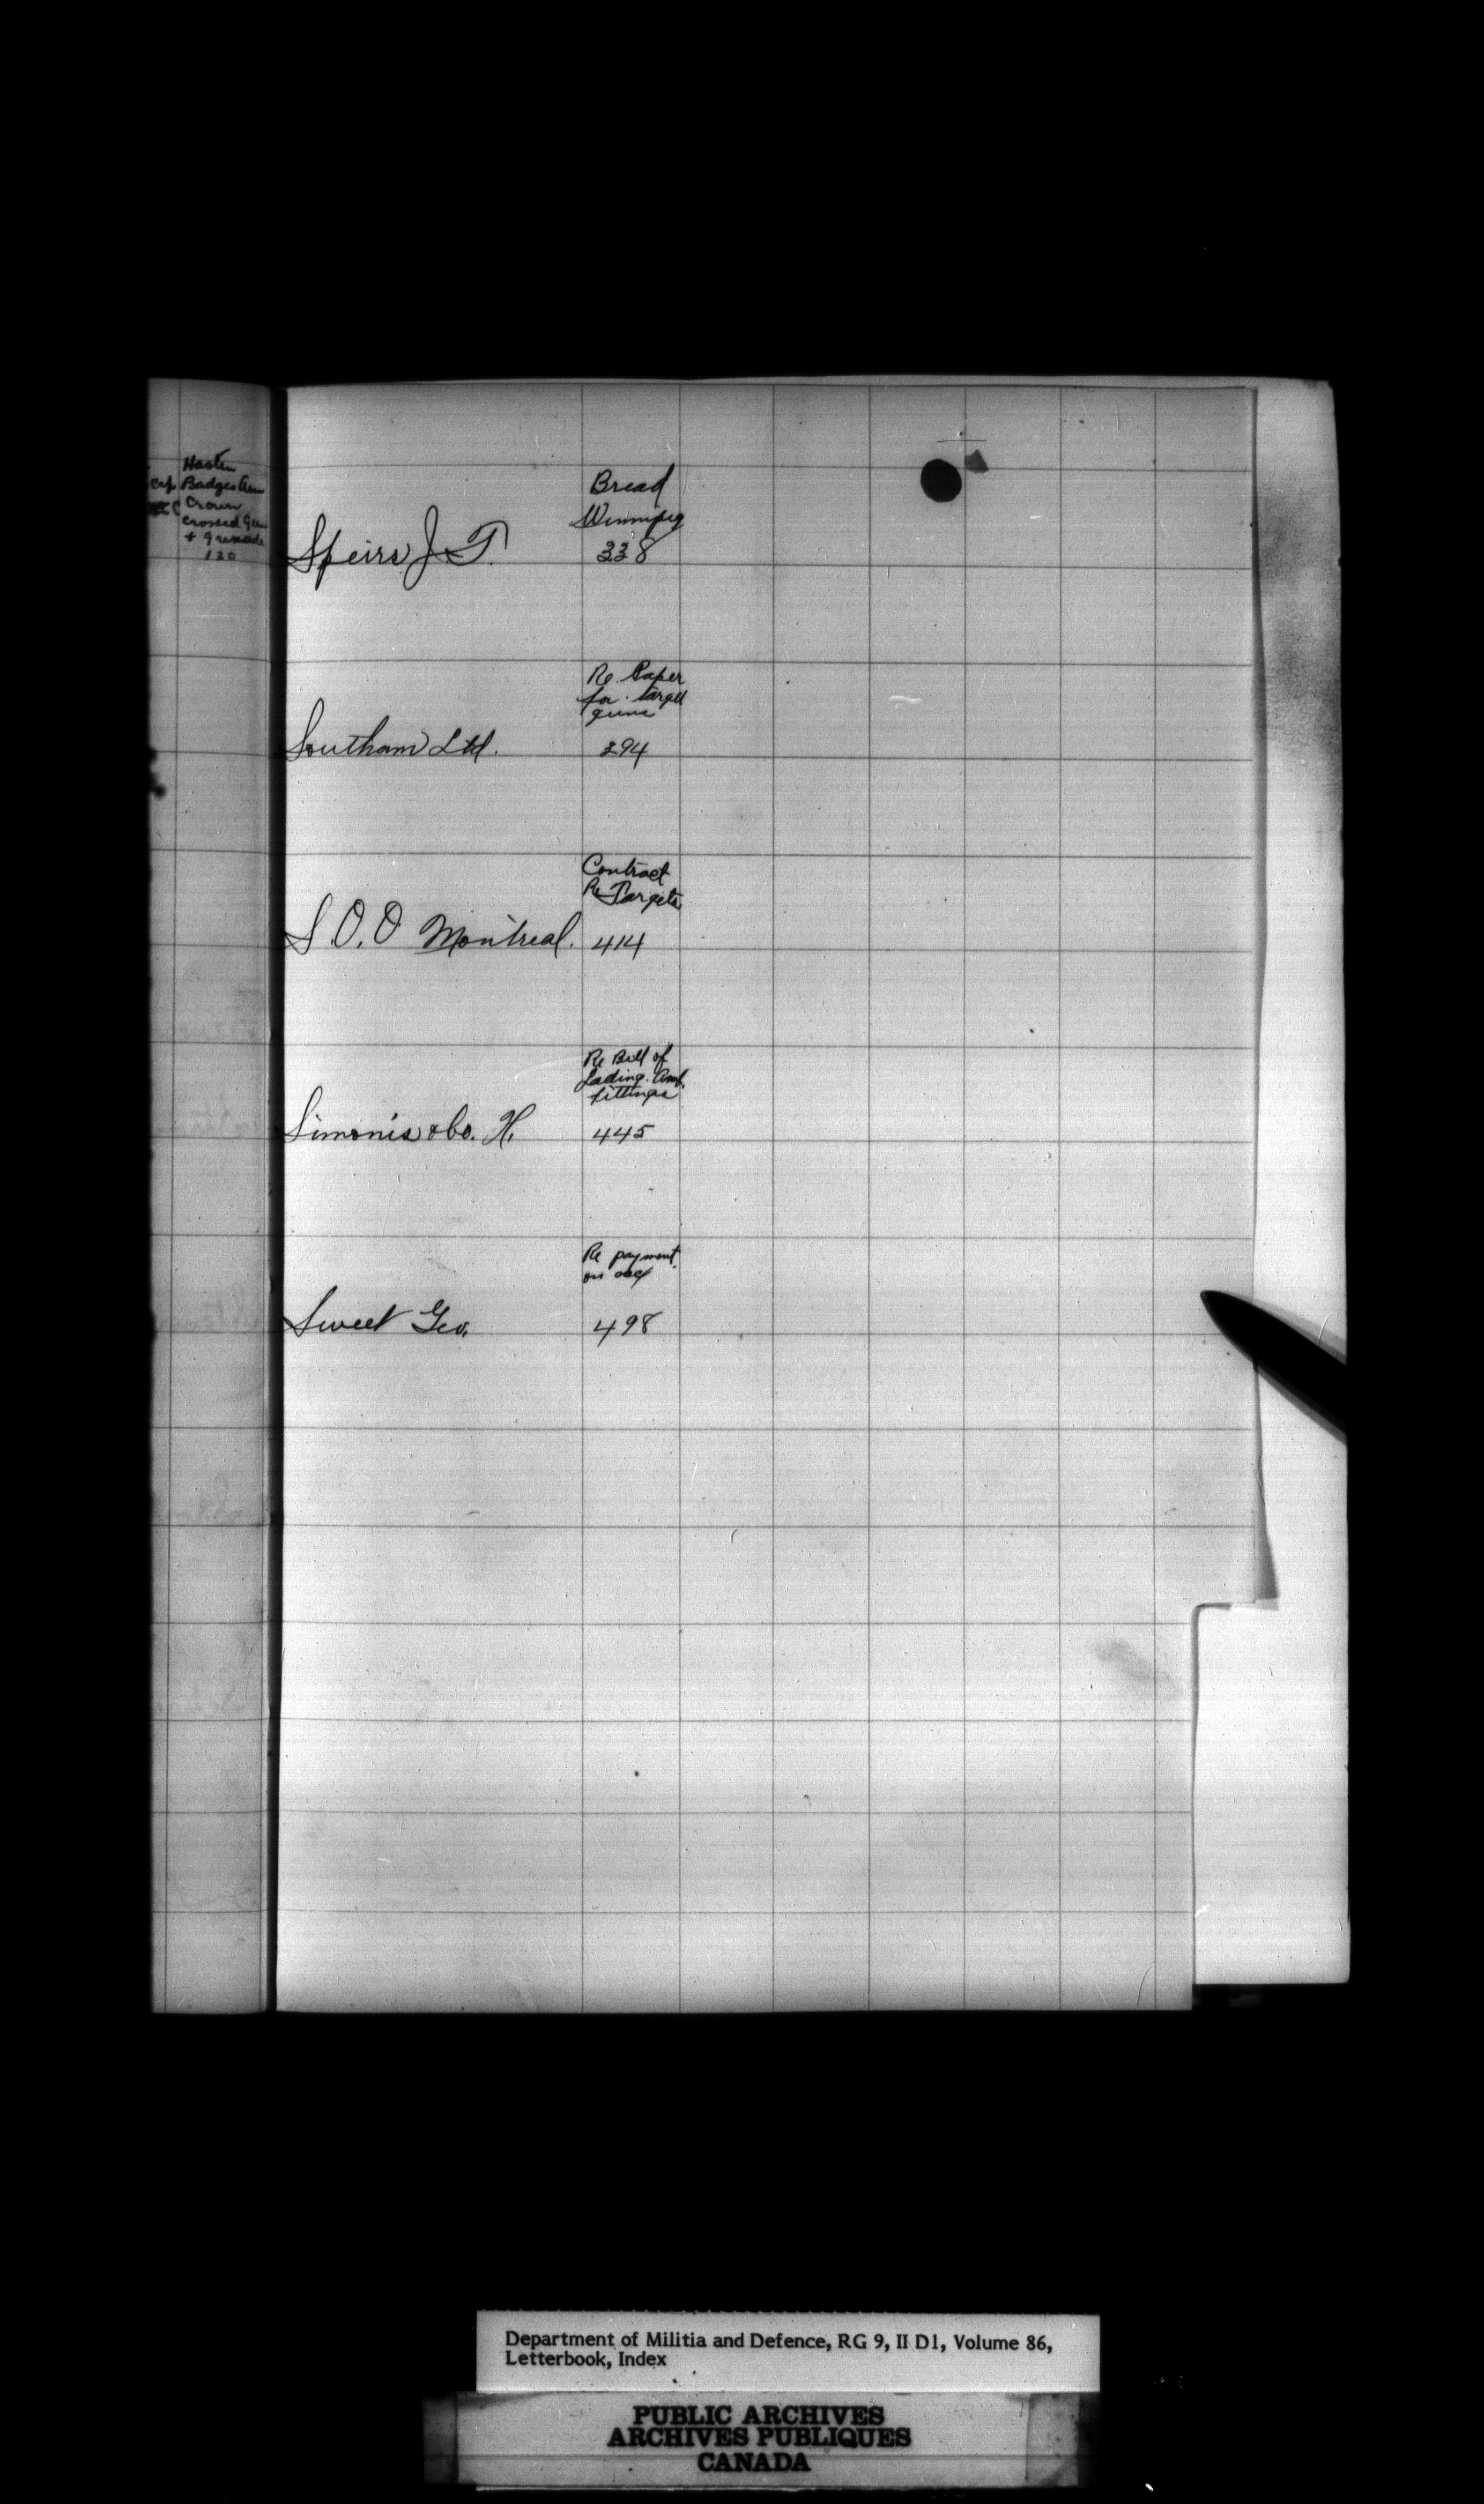 Hasten
Cap Badges Arm
Crown
Crossed Gun
+ grenade
130
Bread
Winnipeg
Speirs J. T. 338
Re Paper
for target
guns
Southam Ltd. 294
Contract
Re Targets
S.O.O Montreal. 414
Re Bill of
Lading. Amb.
fittings
Simonis & Co. H. 445
Re payment
on acc
Sweet Geo. 498
Department of Militia and Defence, RG 9, II D1, Volume 86,
Letterbook, Index
PUBLIC ARCHIVES
ARCHIVES PUBLIQUES
CANADA